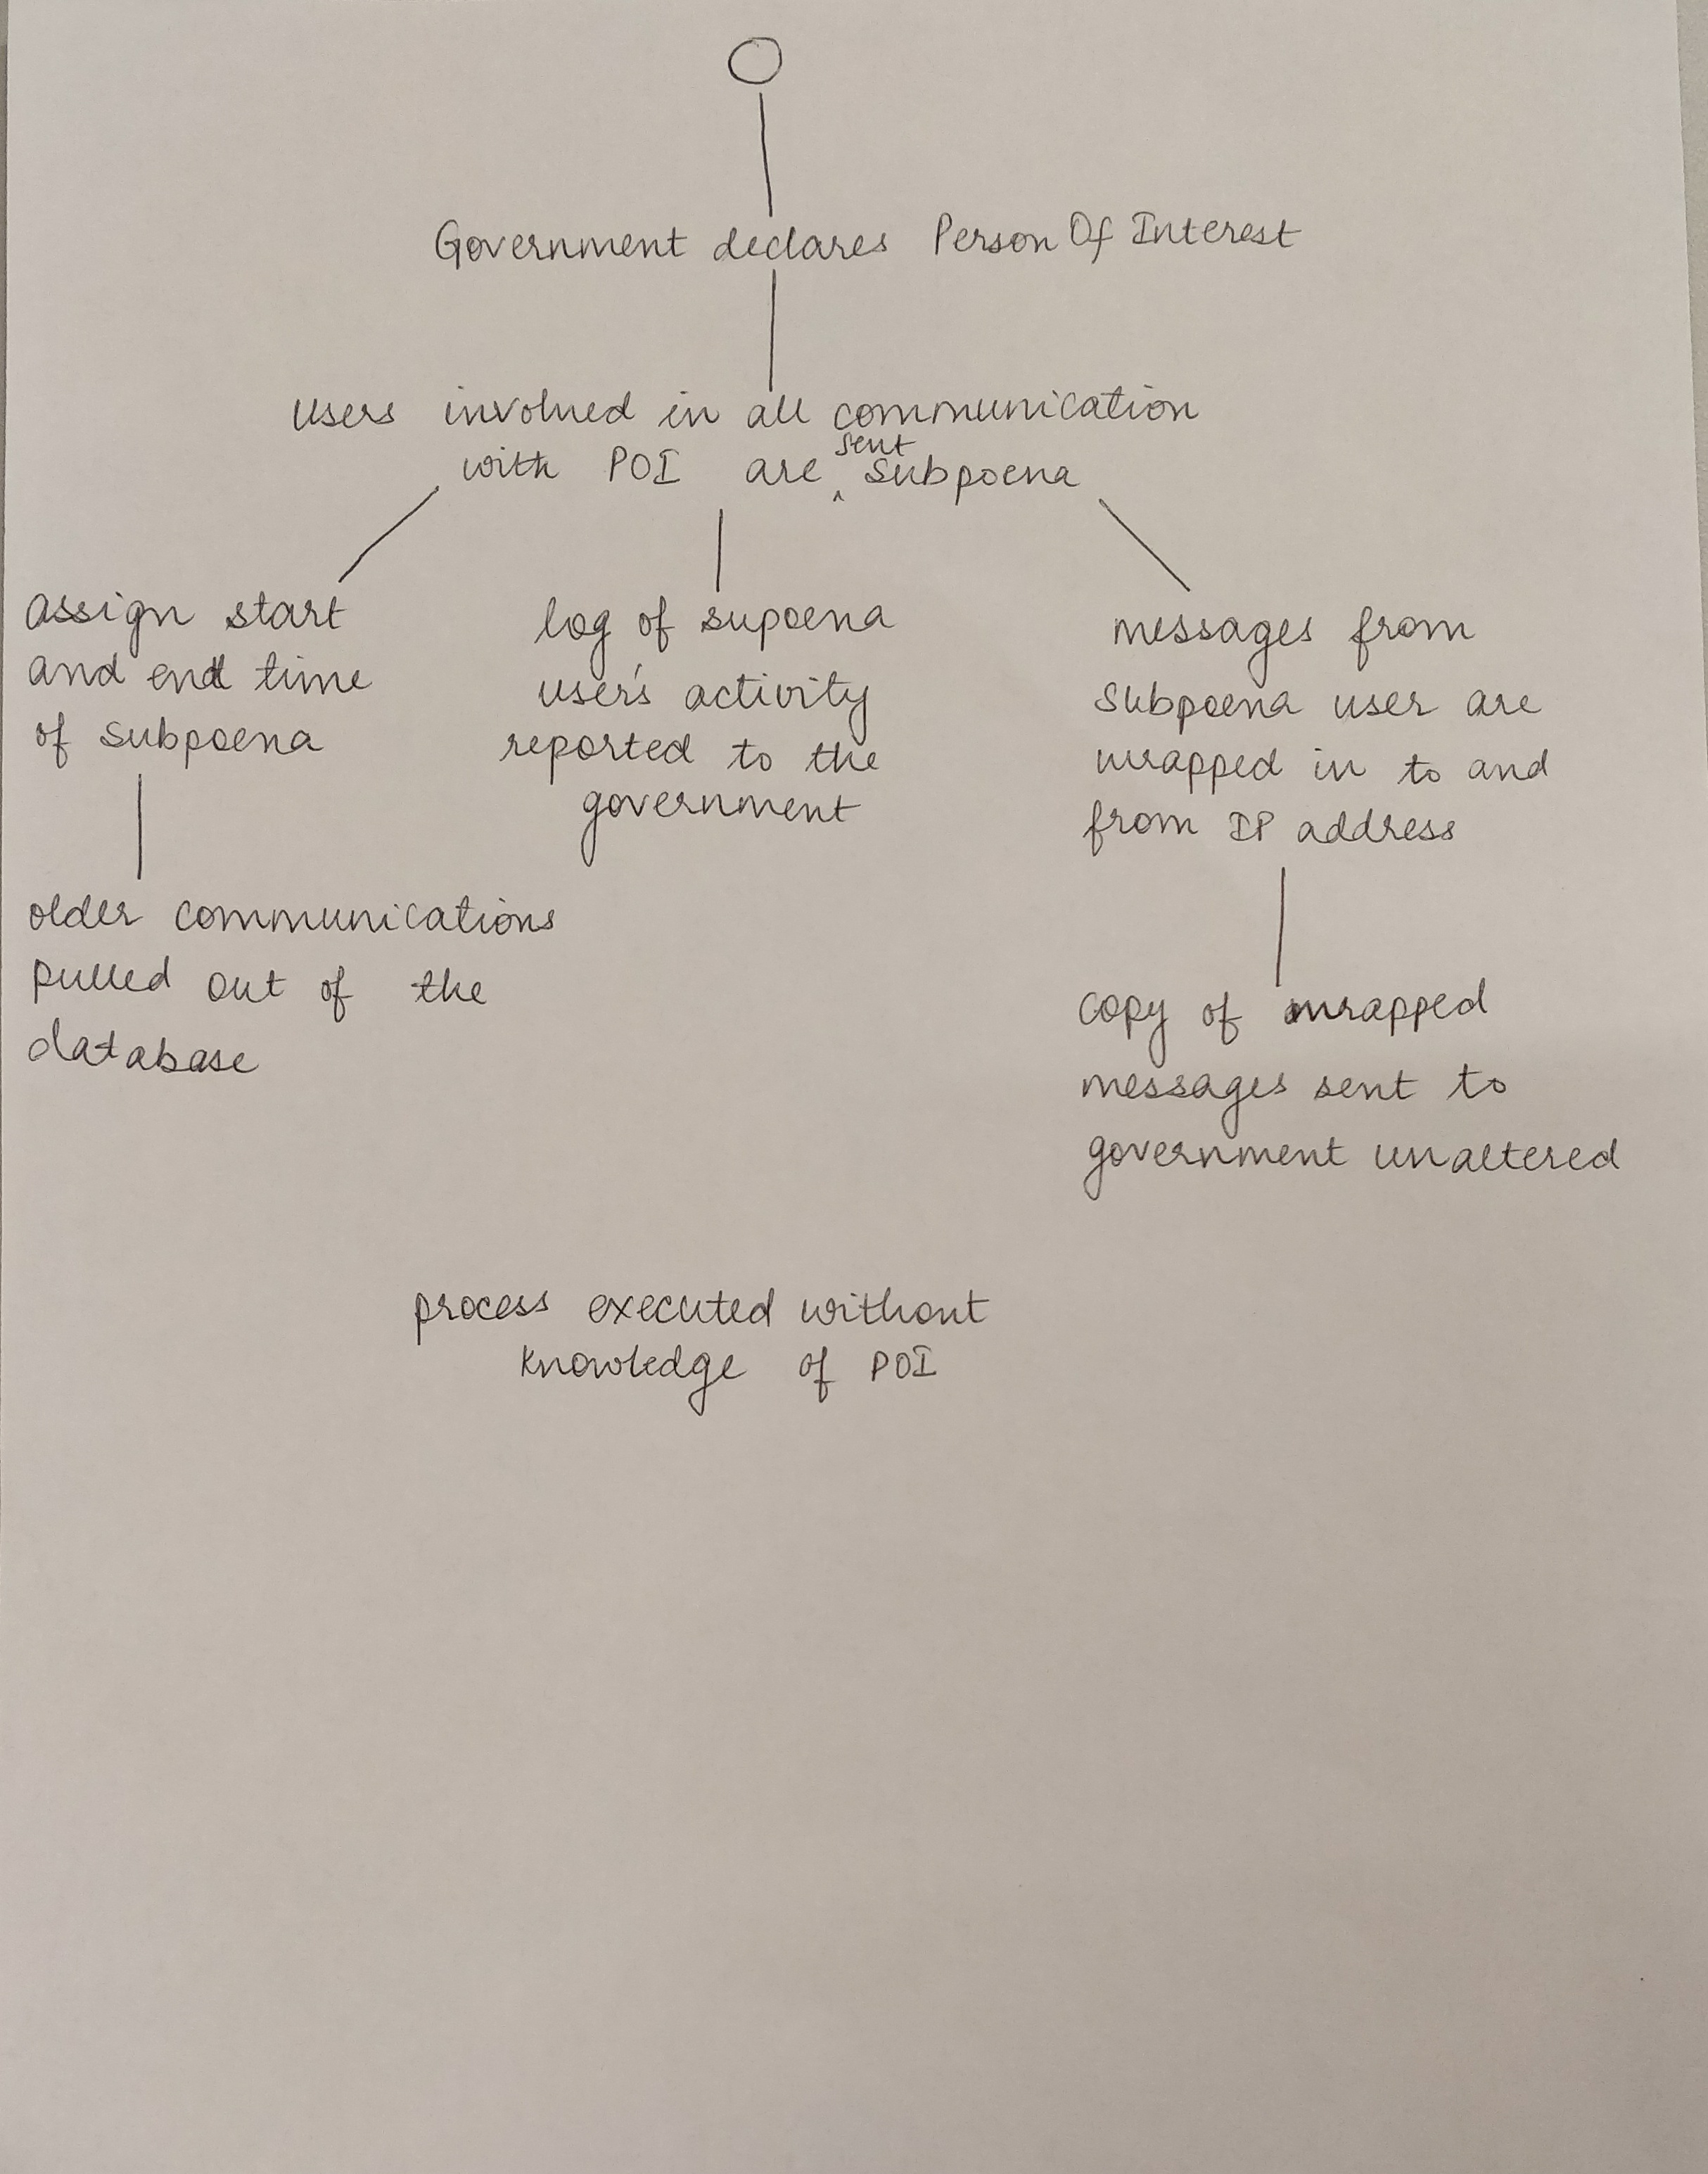 Government declares Person Of Interest
users involved in all communication
with POI are ^ sent subpoena
assign start
and end time
of subpoena
older communications
pulled out of the
database
log of supoena
user's activity
reported to the
government
messages from
subpoena user are
wrapped in to and
from IP address
copy of wrapped
messages sent to
government unaltered
process executed without
knowledge of POI